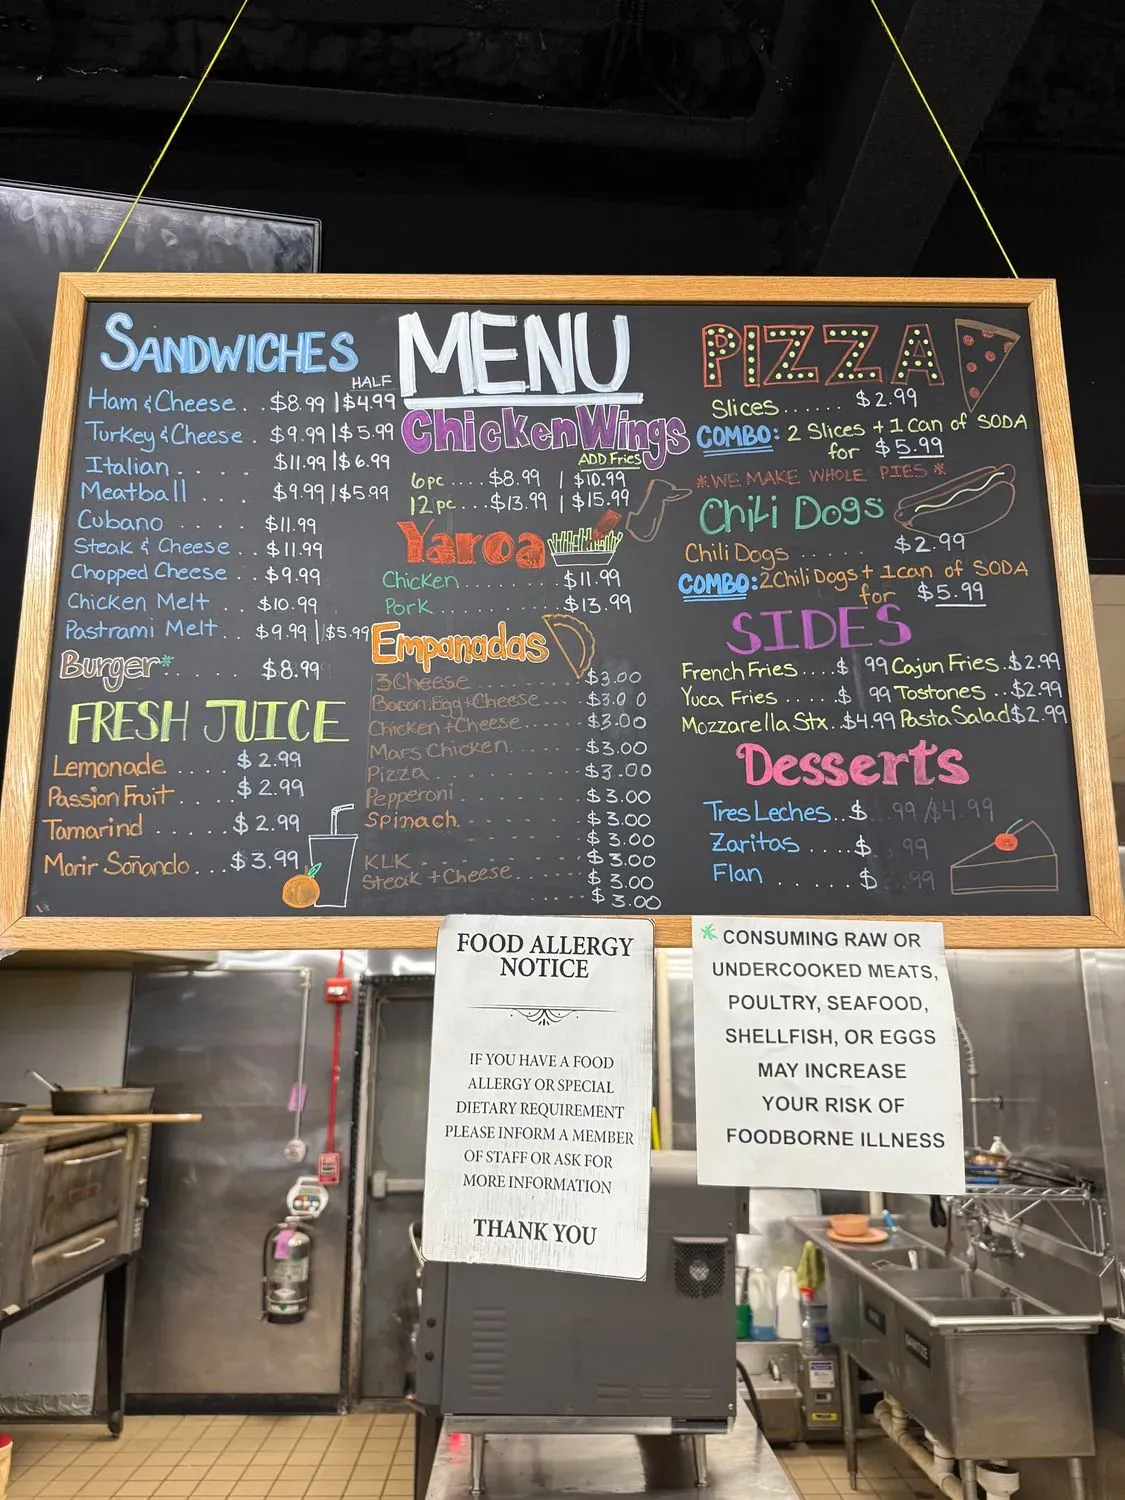 MENU
SANDWICHES
HALF
Ham & Cheese . . $8.99 | $4.99
Turkey & Cheese . $9.99 | $5.99
Italian . . . . $11.99 | $6.99
Meatball . . . $9.99 | $5.99
Cubano . . . . $11.99
Steak & Cheese . $11.99
Chopped Cheese . . $9.99
Chicken Melt . . $10.99
Pastrami Melt . . $9.99 | $5.99
Burger* . . . . . $8.99
FRESH JUICE
Lemonade . . . . $2.99
Passion Fruit . . . . $2.99
Tamarind . . . . . $2.99
Morir Soñando . . . $3.99
Chicken Wings
ADD Fries
6pc .... $8.99 | $10.99
12pc .... $13.99 | $15.99
Yaroa
Chicken . . . . . . . . $11.99
Pork . . . . . . . . . . $13.99
Empanadas
3 Cheese . . . . . . . . $3.00
Bacon, Egg + Cheese . . . $3.00
Chicken + Cheese . . . . $3.00
Mars Chicken . . . . . $3.00
Pizza . . . . . . . . . $3.00
Pepperoni . . . . . . . $3.00
Spinach . . . . . . . . $3.00
$3.00
KLK . . . . . . . . $3.00
Steak + Cheese . . . . . $3.00
. . . . . $3.00
PIZZA
Slices . . . . . . $2.99
COMBO: 2 Slices + 1 can of SODA
for $5.99
*WE MAKE WHOLE PIES*
Chili Dogs
Chili Dogs . . . . . . $2.99
COMBO: 2 Chili Dogs + 1 can of SODA
for $5.99
SIDES
French Fries . . . . $ 99 Cajun Fries . . $2.99
Yuca Fries . . . . . $ 99 Tostones . . $2.99
Mozzarella Stx . . $4.99 Pasta Salad $2.99
Desserts
Tres Leches . . $ .99/$4.99
Zaritas . . . . $ .99
Flan . . . . . $ .99
FOOD ALLERGY
NOTICE
IF YOU HAVE A FOOD
ALLERGY OR SPECIAL
DIETARY REQUIREMENT
PLEASE INFORM A MEMBER
OF STAFF OR ASK FOR
MORE INFORMATION
THANK YOU
* CONSUMING RAW OR
UNDERCOOKED MEATS,
POULTRY, SEAFOOD,
SHELLFISH, OR EGGS
MAY INCREASE
YOUR RISK OF
FOODBORNE ILLNESS